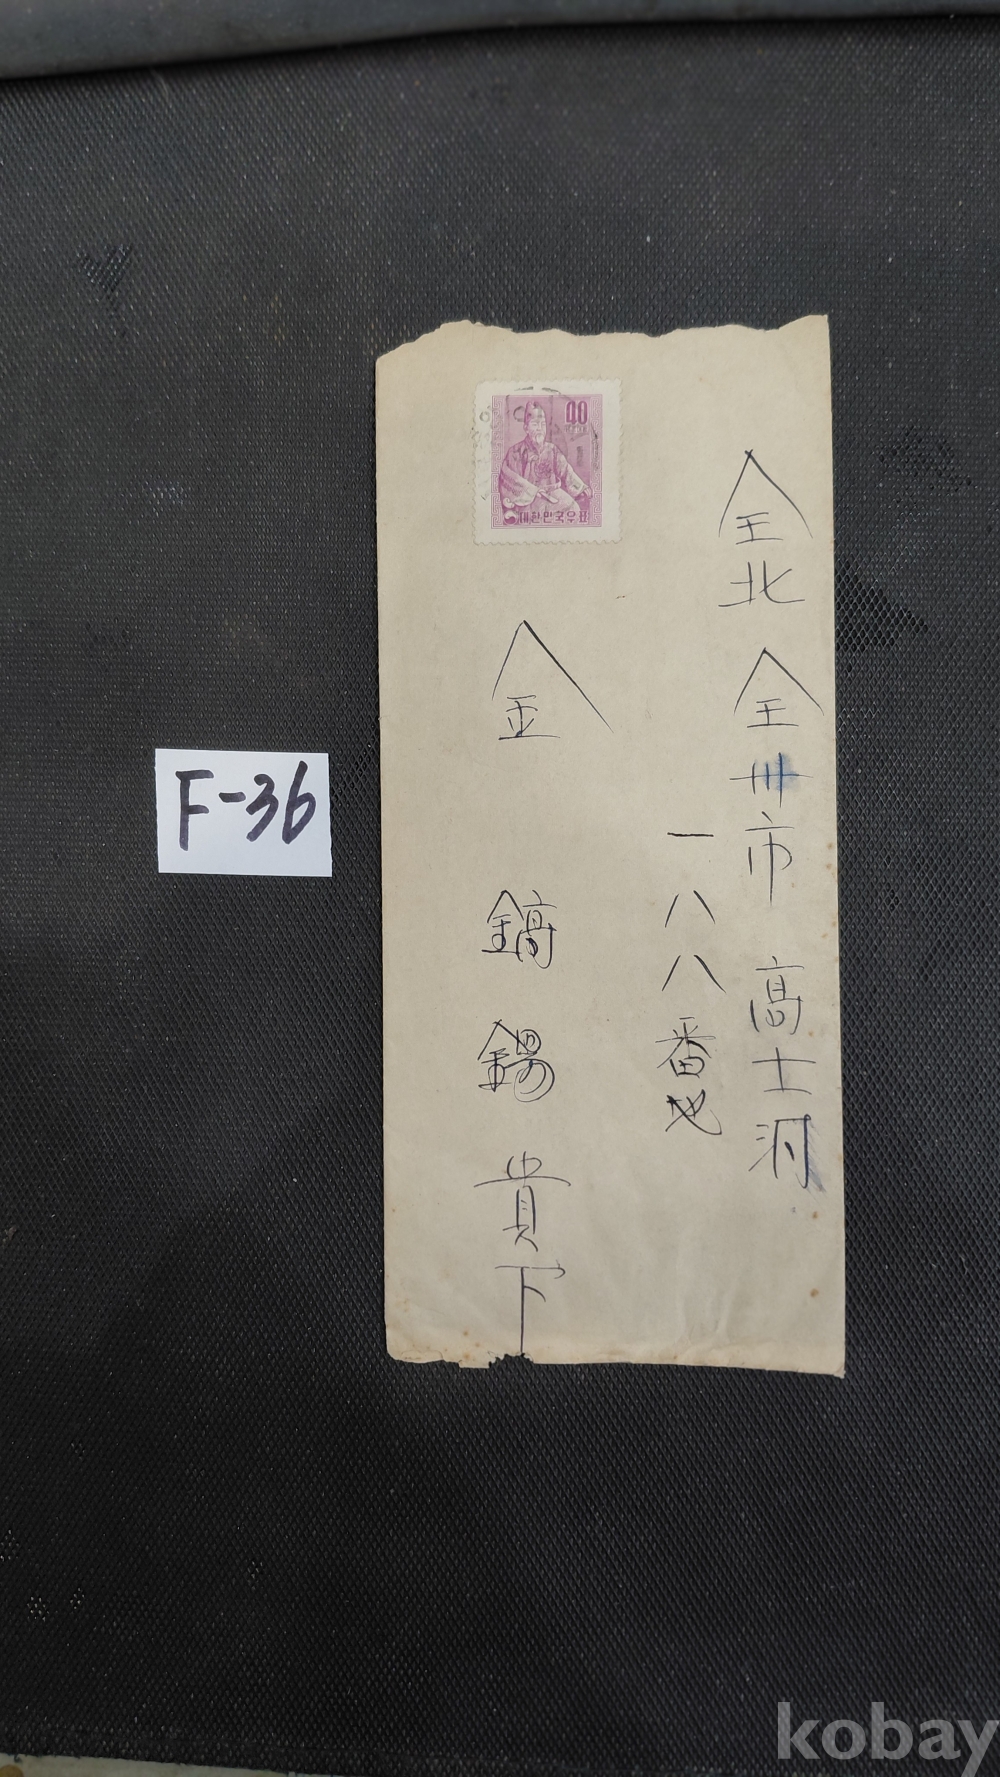 全北 全州市 高士洞
一八八番地
金 鎬錫 貴下
40
대한민국우표
F-36
kobay